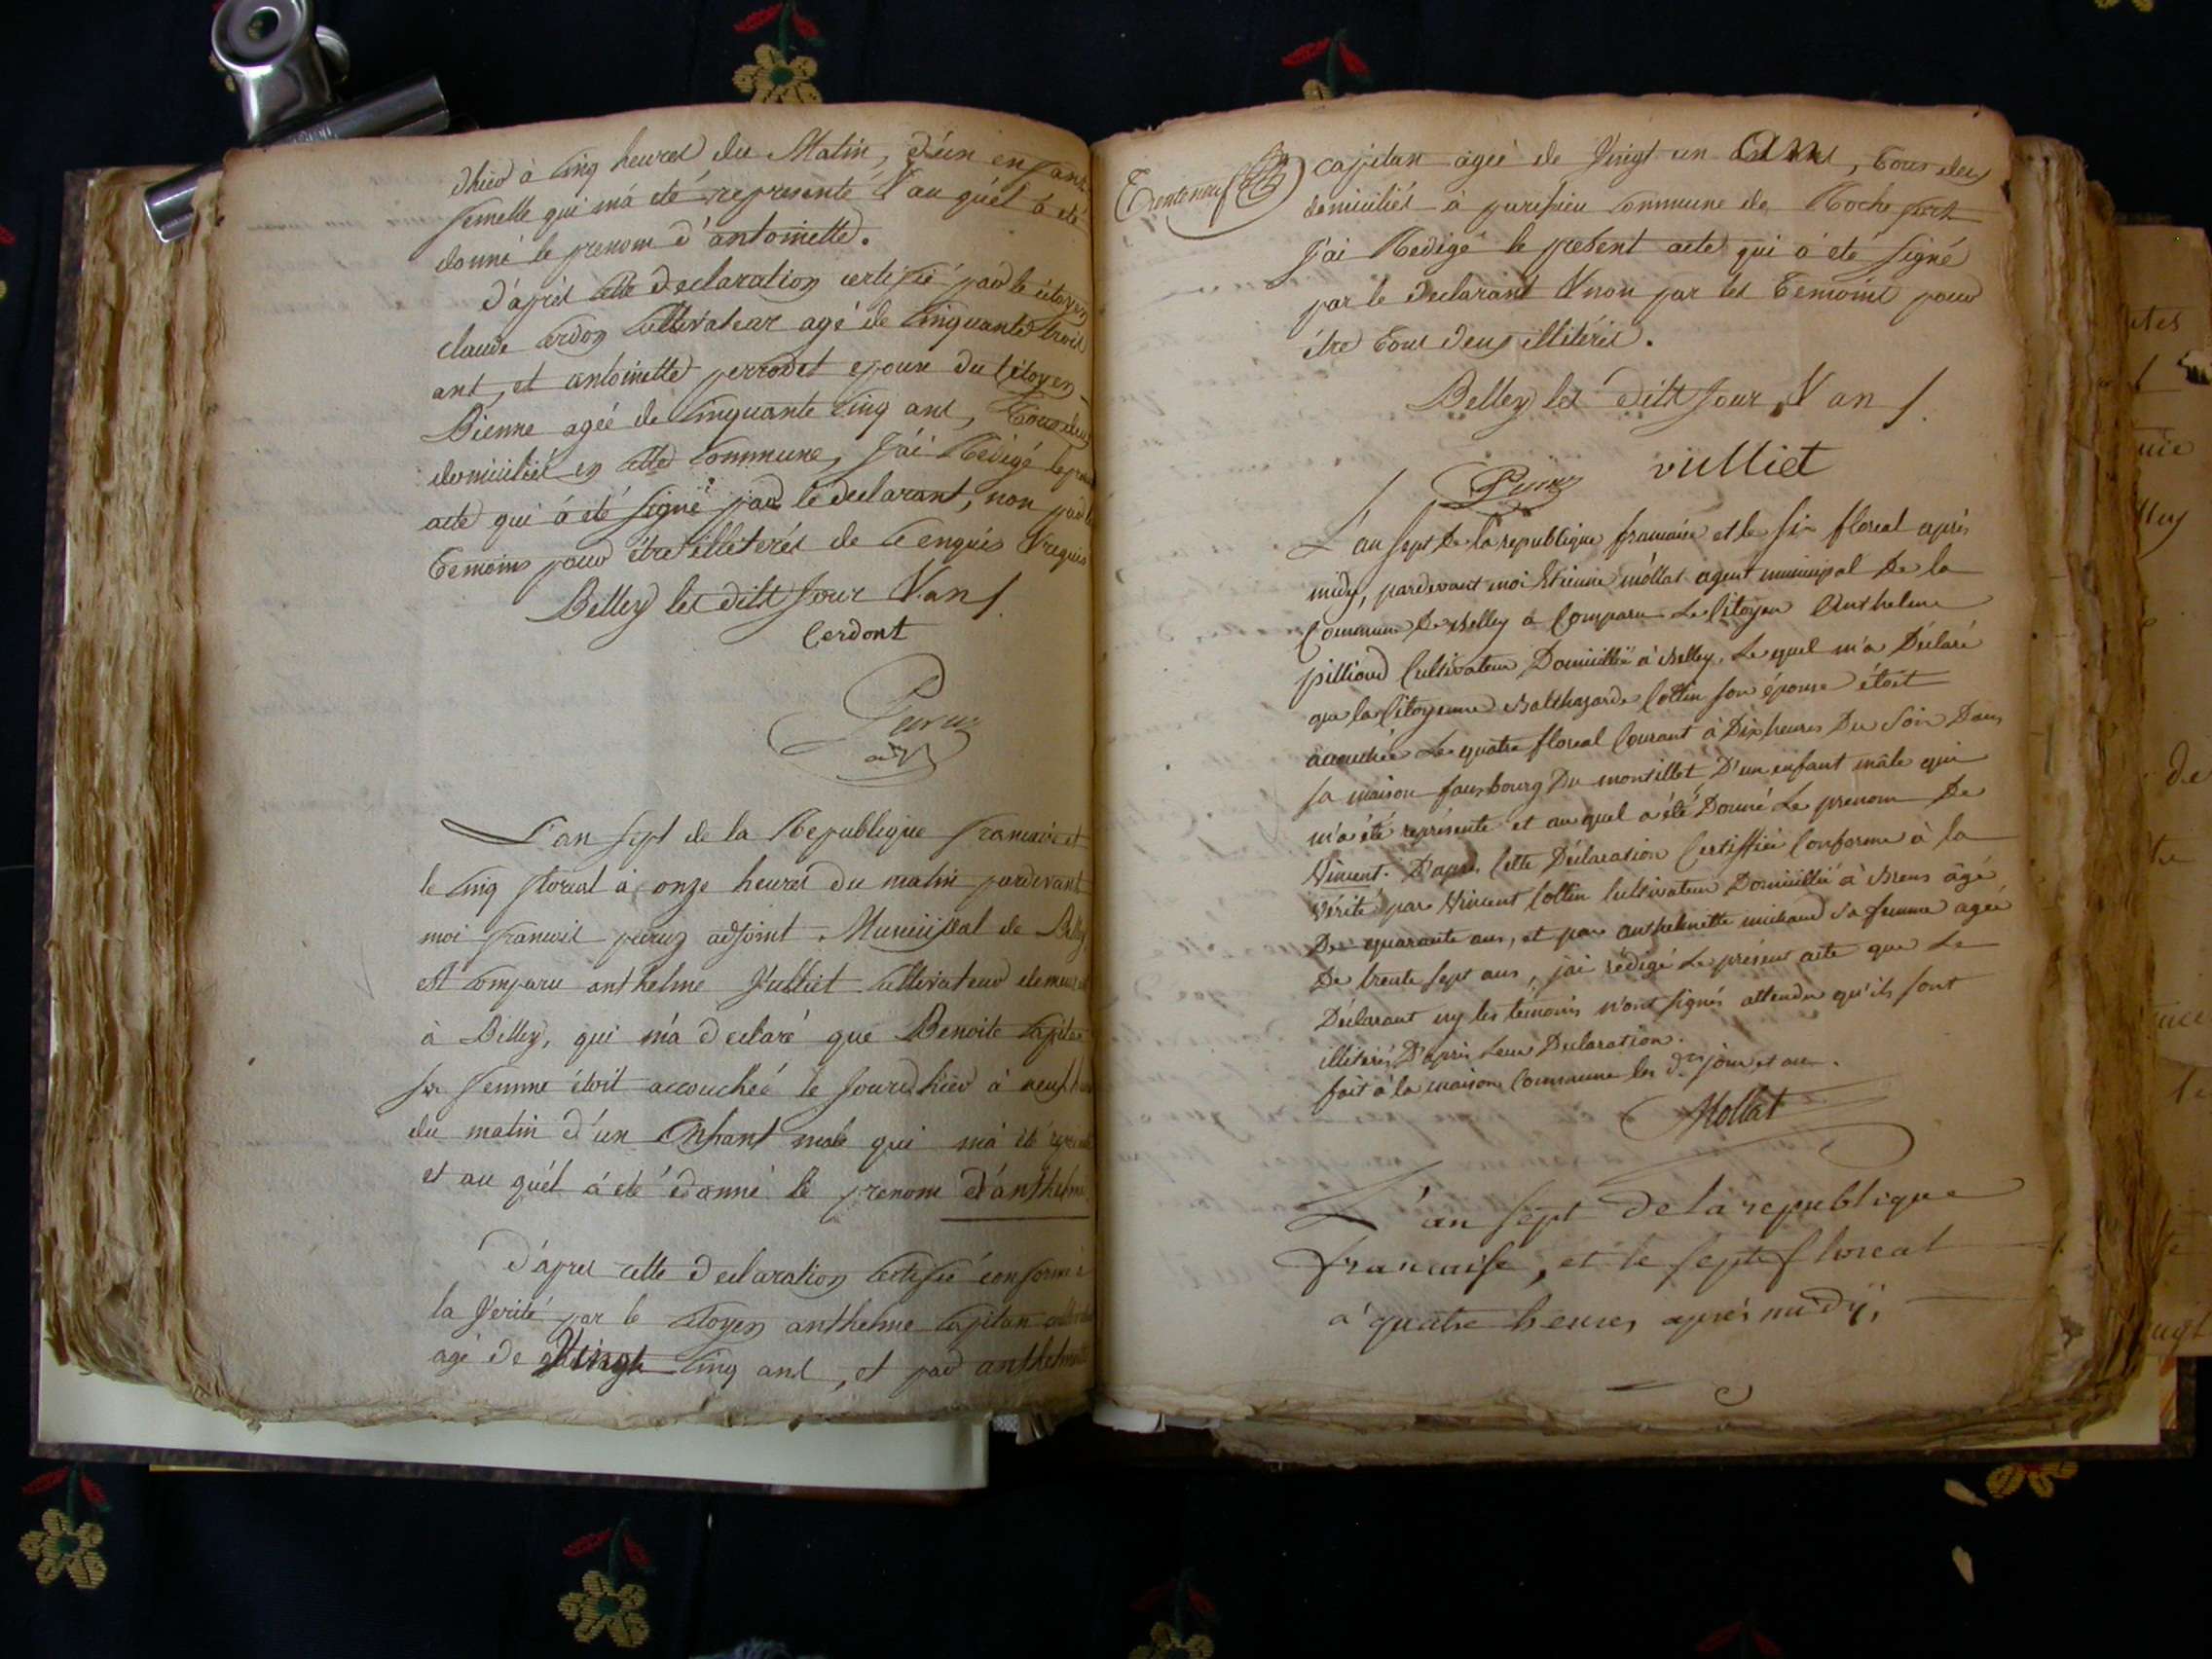 d'hier à cinq heures du Matin, d'un enfant
femelle qui m'a eté representé & au quel à eté
donné le prenom d'antoinette.
D'après cette declaration certifié par le citoyen
claude cerdon cultivateur agé de cinquante trois
ans, et antoinette perrodet epouse du Citoyen
Bienne ageé de cinquante cinq ans, Tous deux
domiciliés en cette commune, J'ai Redigé le
acte qui à eté signé par le declarant, non par les
temoins pour être illiterés de ce enquis & requis
Belley les dits Jour & an /.
Cerdont
Peruz
adj
L'an sept de la Republique francaise et
le cinq floreal à onze heures du matin pardevant
moi francois peruz adjoint Municipal de Belley
est comparu anthelme Vulliet cultivateur
à Belley, qui m'a declaré que Benoite Capitan
sa femme étoit accouchéé le Jour d'hier à neuf
du matin d'un Enfant male qui m'à eté
et au quél à eté donné le prenom d'anthelme
D'aprés cette declaration certifié conforme à
la Verité par le citoyen anthelme Capitan
agé de Vingt cinq ans, et par anthelmette
Trente neuf
capitan ageé de Vingt un ans, Tous deux
domiciliés à parissieu commune de Rochefort
J'ai Redigé le present acte qui à eté signé
par le declarant & non par les Temoins pour
être Tous deux illiterés.
Belley les dits Jour & an /.
Peruz vulliet
L'an sept De la republique francaise et le six floreal après
midy, pardevant moi Etienne mollat agent municipal De la
Commune De Belley a Comparu Le Citoyen Anthelme
pilliond Cultivateur Domicillié à Belley, Lequel m'a Déclaré
que la Citoyenne Balthazarde Cottin son épouse étoit
accouchée Le quatre floreal Courant à Dix heures Du Soir Dans
sa maison fauxbourg Du montillet D'un enfant mâle qui
m'a été représenté et au quel a été Donné Le prenom De
Vincent. D'après Cette Déclaration Certiffiée Conforme à la
Vérité par Vincent Cottin Cultivateur Domicillié à Brens âgé
De quarante ans, et par anthelmette michaud Sa femme agée
De trente sept ans, j'ai rédigé Le présent acte que Le
Déclarant ny les témoins n'ont signés attendu qu'ils sont
illiterés D'après Leur Declaration.
fait à la maison Commune les dts jour et an.
Mollat
L'an sept De la republique
francaise, et le sept floreal
a quatre heures après midÿ,